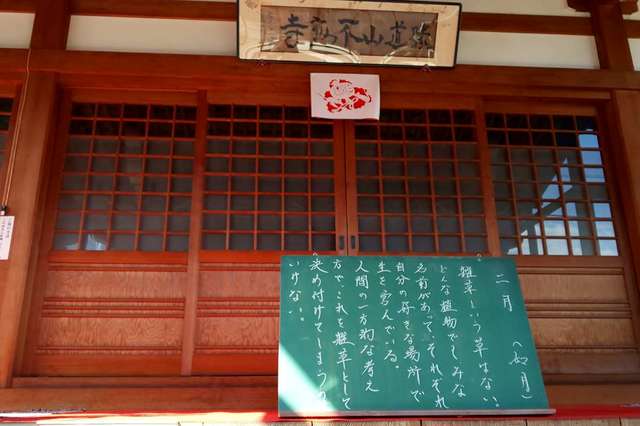 道山不動寺
二月 (如月)
雑草という草はない。
どんな植物でもみな
名前があって、それぞれ
自分の好きな場所で
生を営んでいる。
人間の一方的な考え
方でこれを雑草として
決め付けてしまうの
いけない。